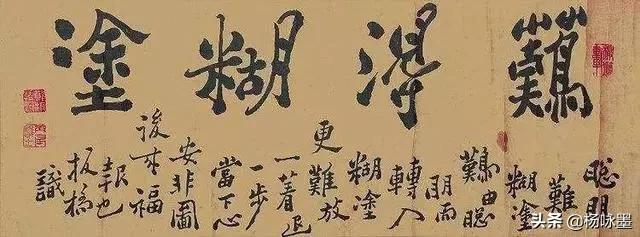 難得糊塗
聰明
難
糊塗
難由聰
明而
轉入
糊塗
更難放
一著退
一步
當下心
安非圖
後來福
報也
板橋
識
头条 @杨咏墨